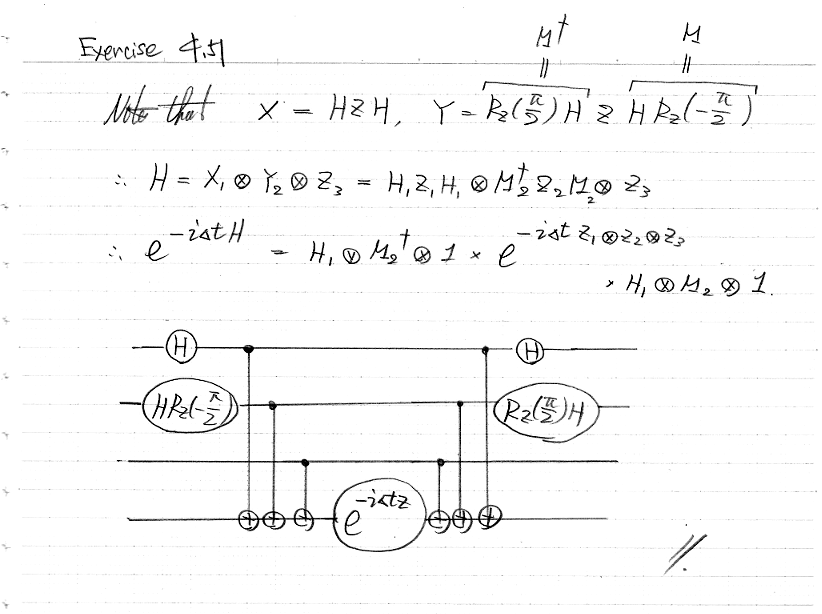 Exercise 4.51
M† M
|| ||
Note that X = HZH, Y = Rz(π/2)H Z H Rz(-π/2)
∴ H = X₁ ⊗ Y₂ ⊗ Z₃ = H₁Z₁H₁ ⊗ M₂†Z₂M₂ ⊗ Z₃
∴ e^{-iΔtH} = H₁ ⊗ M₂† ⊗ 1 × e^{-iΔt Z₁⊗Z₂⊗Z₃}
× H₁ ⊗ M₂ ⊗ 1.
H H
HRz(-π/2) Rz(π/2)H
e^{-iΔtZ}